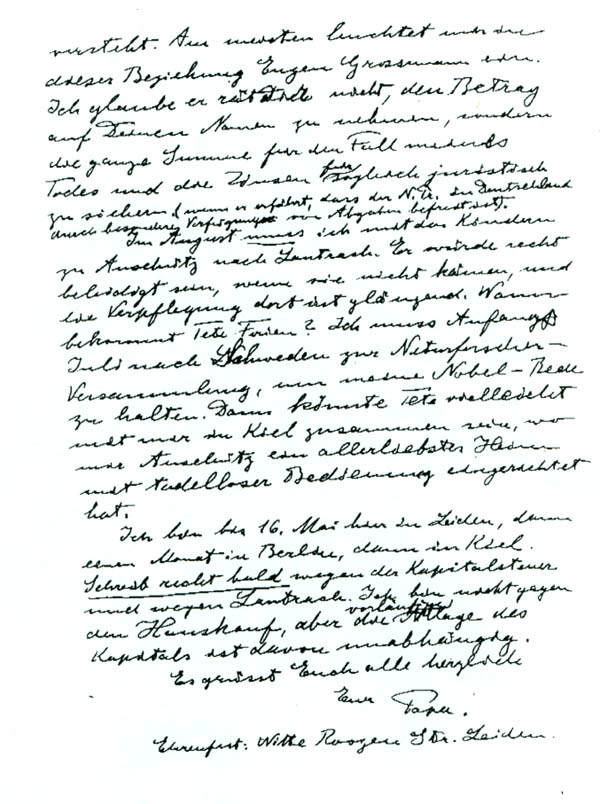 versteht. Am meisten leuchtet mir in
dieser Beziehung Eugen Grossmann ein.
Ich glaube er rät Dir nicht, den Betrag
auf Deinen Namen zu nehmen, sondern
die ganze Summe für den Fall meines
Todes und die Zinsen für sogleich juristisch
zu sichern (wenn er erfährt, dass der N. Pr. in Deutschland
durch besondere Verfügung von Abgaben befreit ist).
Im August muss ich mit den Kindern
zu Anschütz nach Lautrach. Er würde recht
beleidigt sein, wenn sie nicht kämen, und
die Verpflegung dort ist glänzend. Wann
bekommt Tete Ferien? Ich muss Anfang
Juli nach Schweden zur Naturforscher-
Versammlung, um meine Nobel-Rede
zu halten. Dann könnte Tete vielleicht
mit mir in Kiel zusammen sein, wo
mir Anschütz ein allerliebstes Heim
mit tadelloser Bedienung eingerichtet
hat.
Ich bin bis 16. Mai hier in Leiden, dann
einen Monat in Berlin, dann in Kiel.
Schreib recht bald wegen der Kapitalsteuer
und wegen Lautrach. Ich bin nicht gegen
den Hauskauf, aber die vorläufige Anlage des
Kapitals ist davon unabhängig.
Es grüsst Euch alle herzlich
Euer Papa.
Ehrenfest: Witte Roozen Str. Leiden.